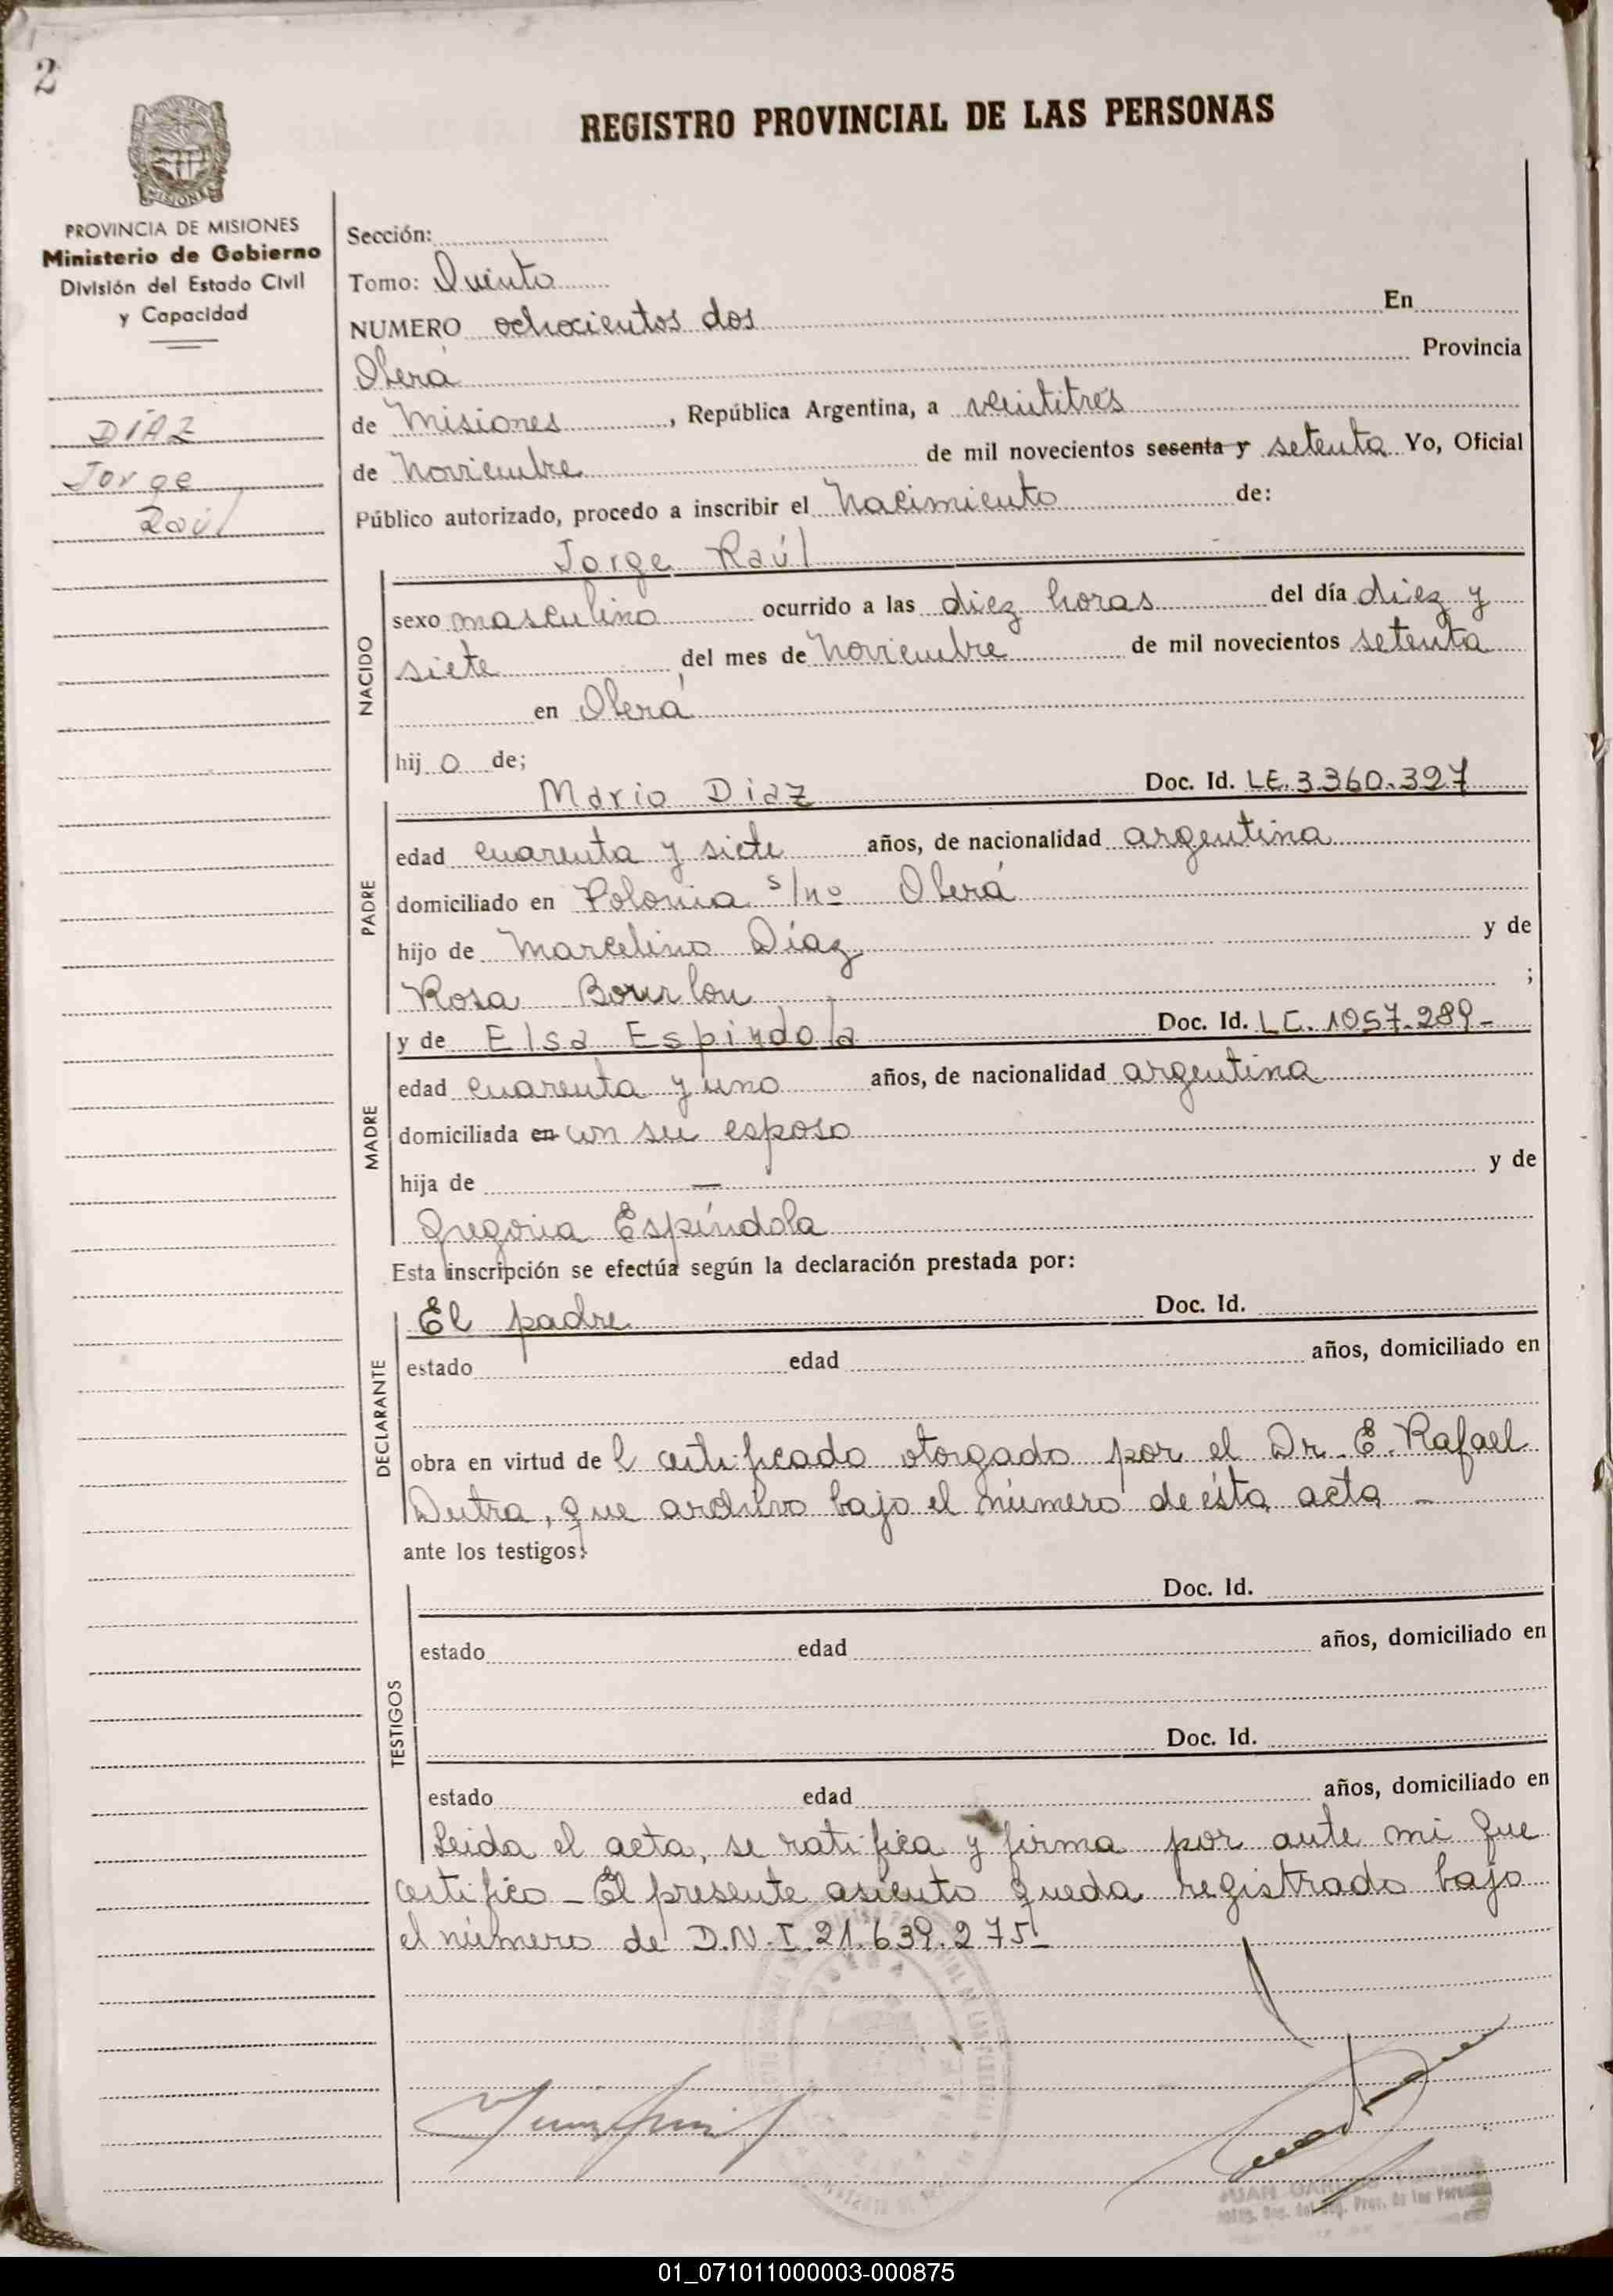 2
REGISTRO PROVINCIAL DE LAS PERSONAS
PROVINCIA DE MISIONES
Ministerio de Gobierno
División del Estado Civil
y Capacidad
DÍAZ
Jorge
Raúl
Sección:
Tomo: Quinto
NUMERO ochocientos dos En
Oberá Provincia
de Misiones, República Argentina, a veintitres
de Noviembre de mil novecientos sesenta y setenta Yo, Oficial
Público autorizado, procedo a inscribir el Nacimiento de:
Jorge Raúl
NACIDO
sexo masculino ocurrido a las diez horas del día diez y
siete del mes de Noviembre de mil novecientos setenta
en Oberá
hij o de;
Mario Diaz Doc. Id. LE. 3.360.327
PADRE
edad cuarenta y siete años, de nacionalidad argentina
domiciliado en Polonia s/nº Oberá
hijo de Marcelino Díaz y de
Rosa Bourlon ;
y de Elsa Espindola Doc. Id. LC. 1057.289-
MADRE
edad cuarenta y uno años, de nacionalidad argentina
domiciliada en con su esposo
hija de — y de
Gregoria Espíndola
Esta inscripción se efectúa según la declaración prestada por:
El padre Doc. Id.
DECLARANTE
estado edad años, domiciliado en
obra en virtud de l certificado otorgado por el Dr. E. Rafael
Dutra, que archivo bajo el número de ésta acta -
ante los testigos:
Doc. Id.
TESTIGOS
estado edad años, domiciliado en
Doc. Id.
estado edad años, domiciliado en
Leida el acta, se ratifica y firma por ante mi que
certifico - El presente asiento queda registrado bajo
el número de D.N.I. 21.639.275-
JUAN
01_071011000003-000875